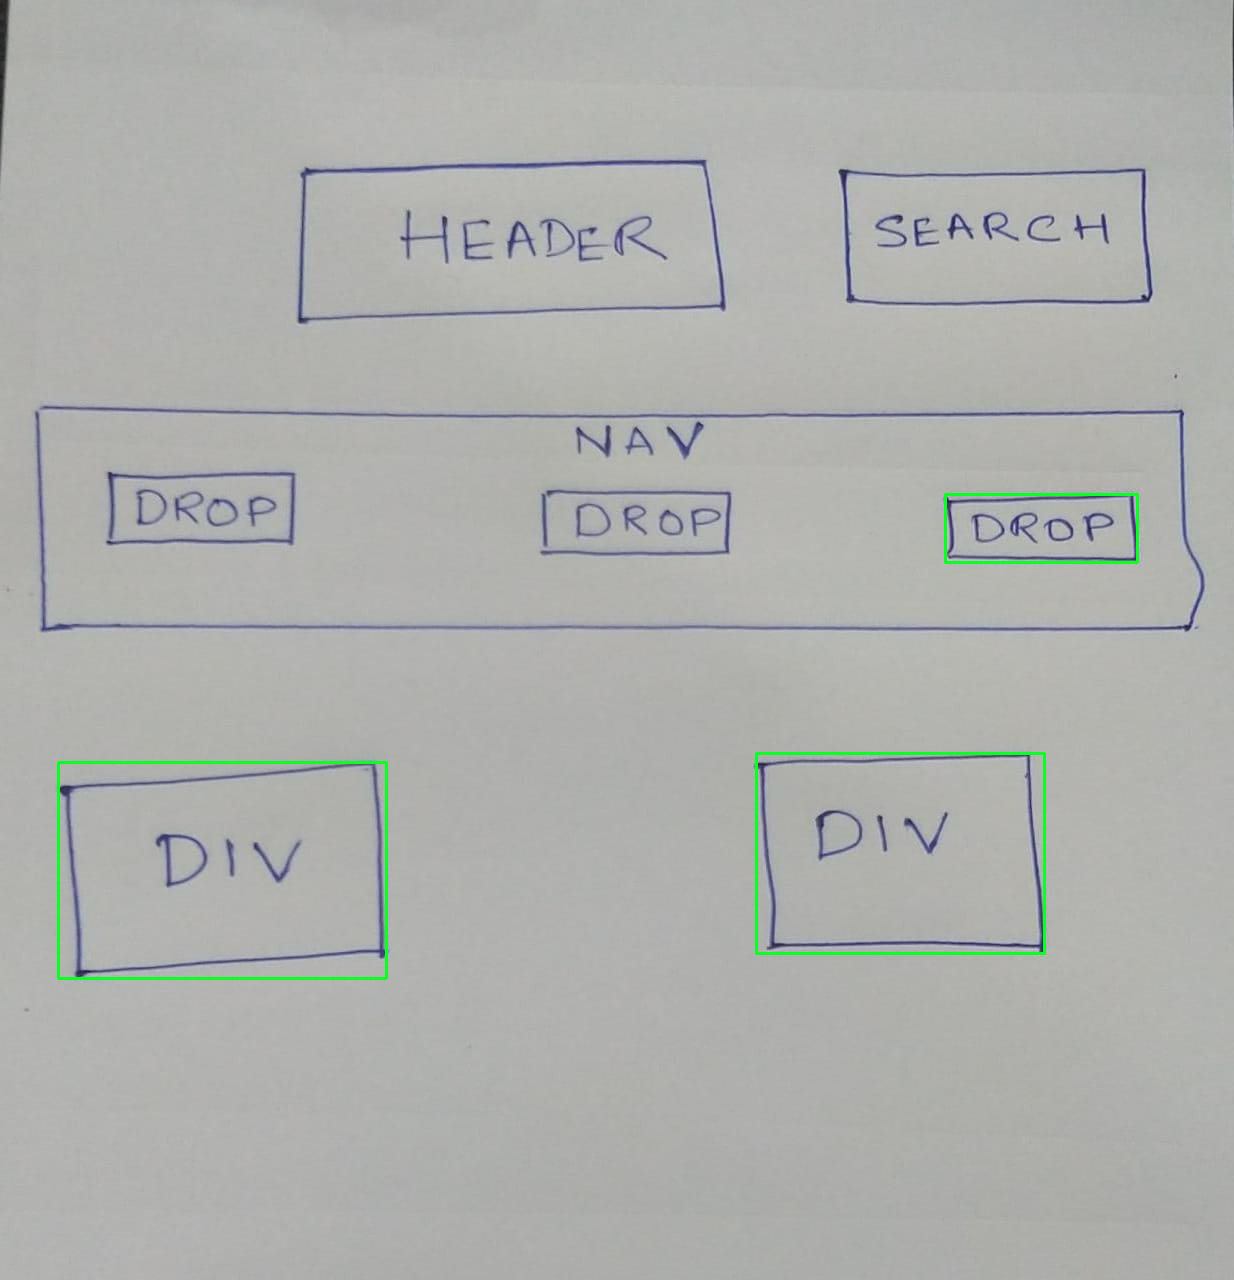 HEADER
SEARCH
NAV
DROP
DROP
DROP
DIV
DIV